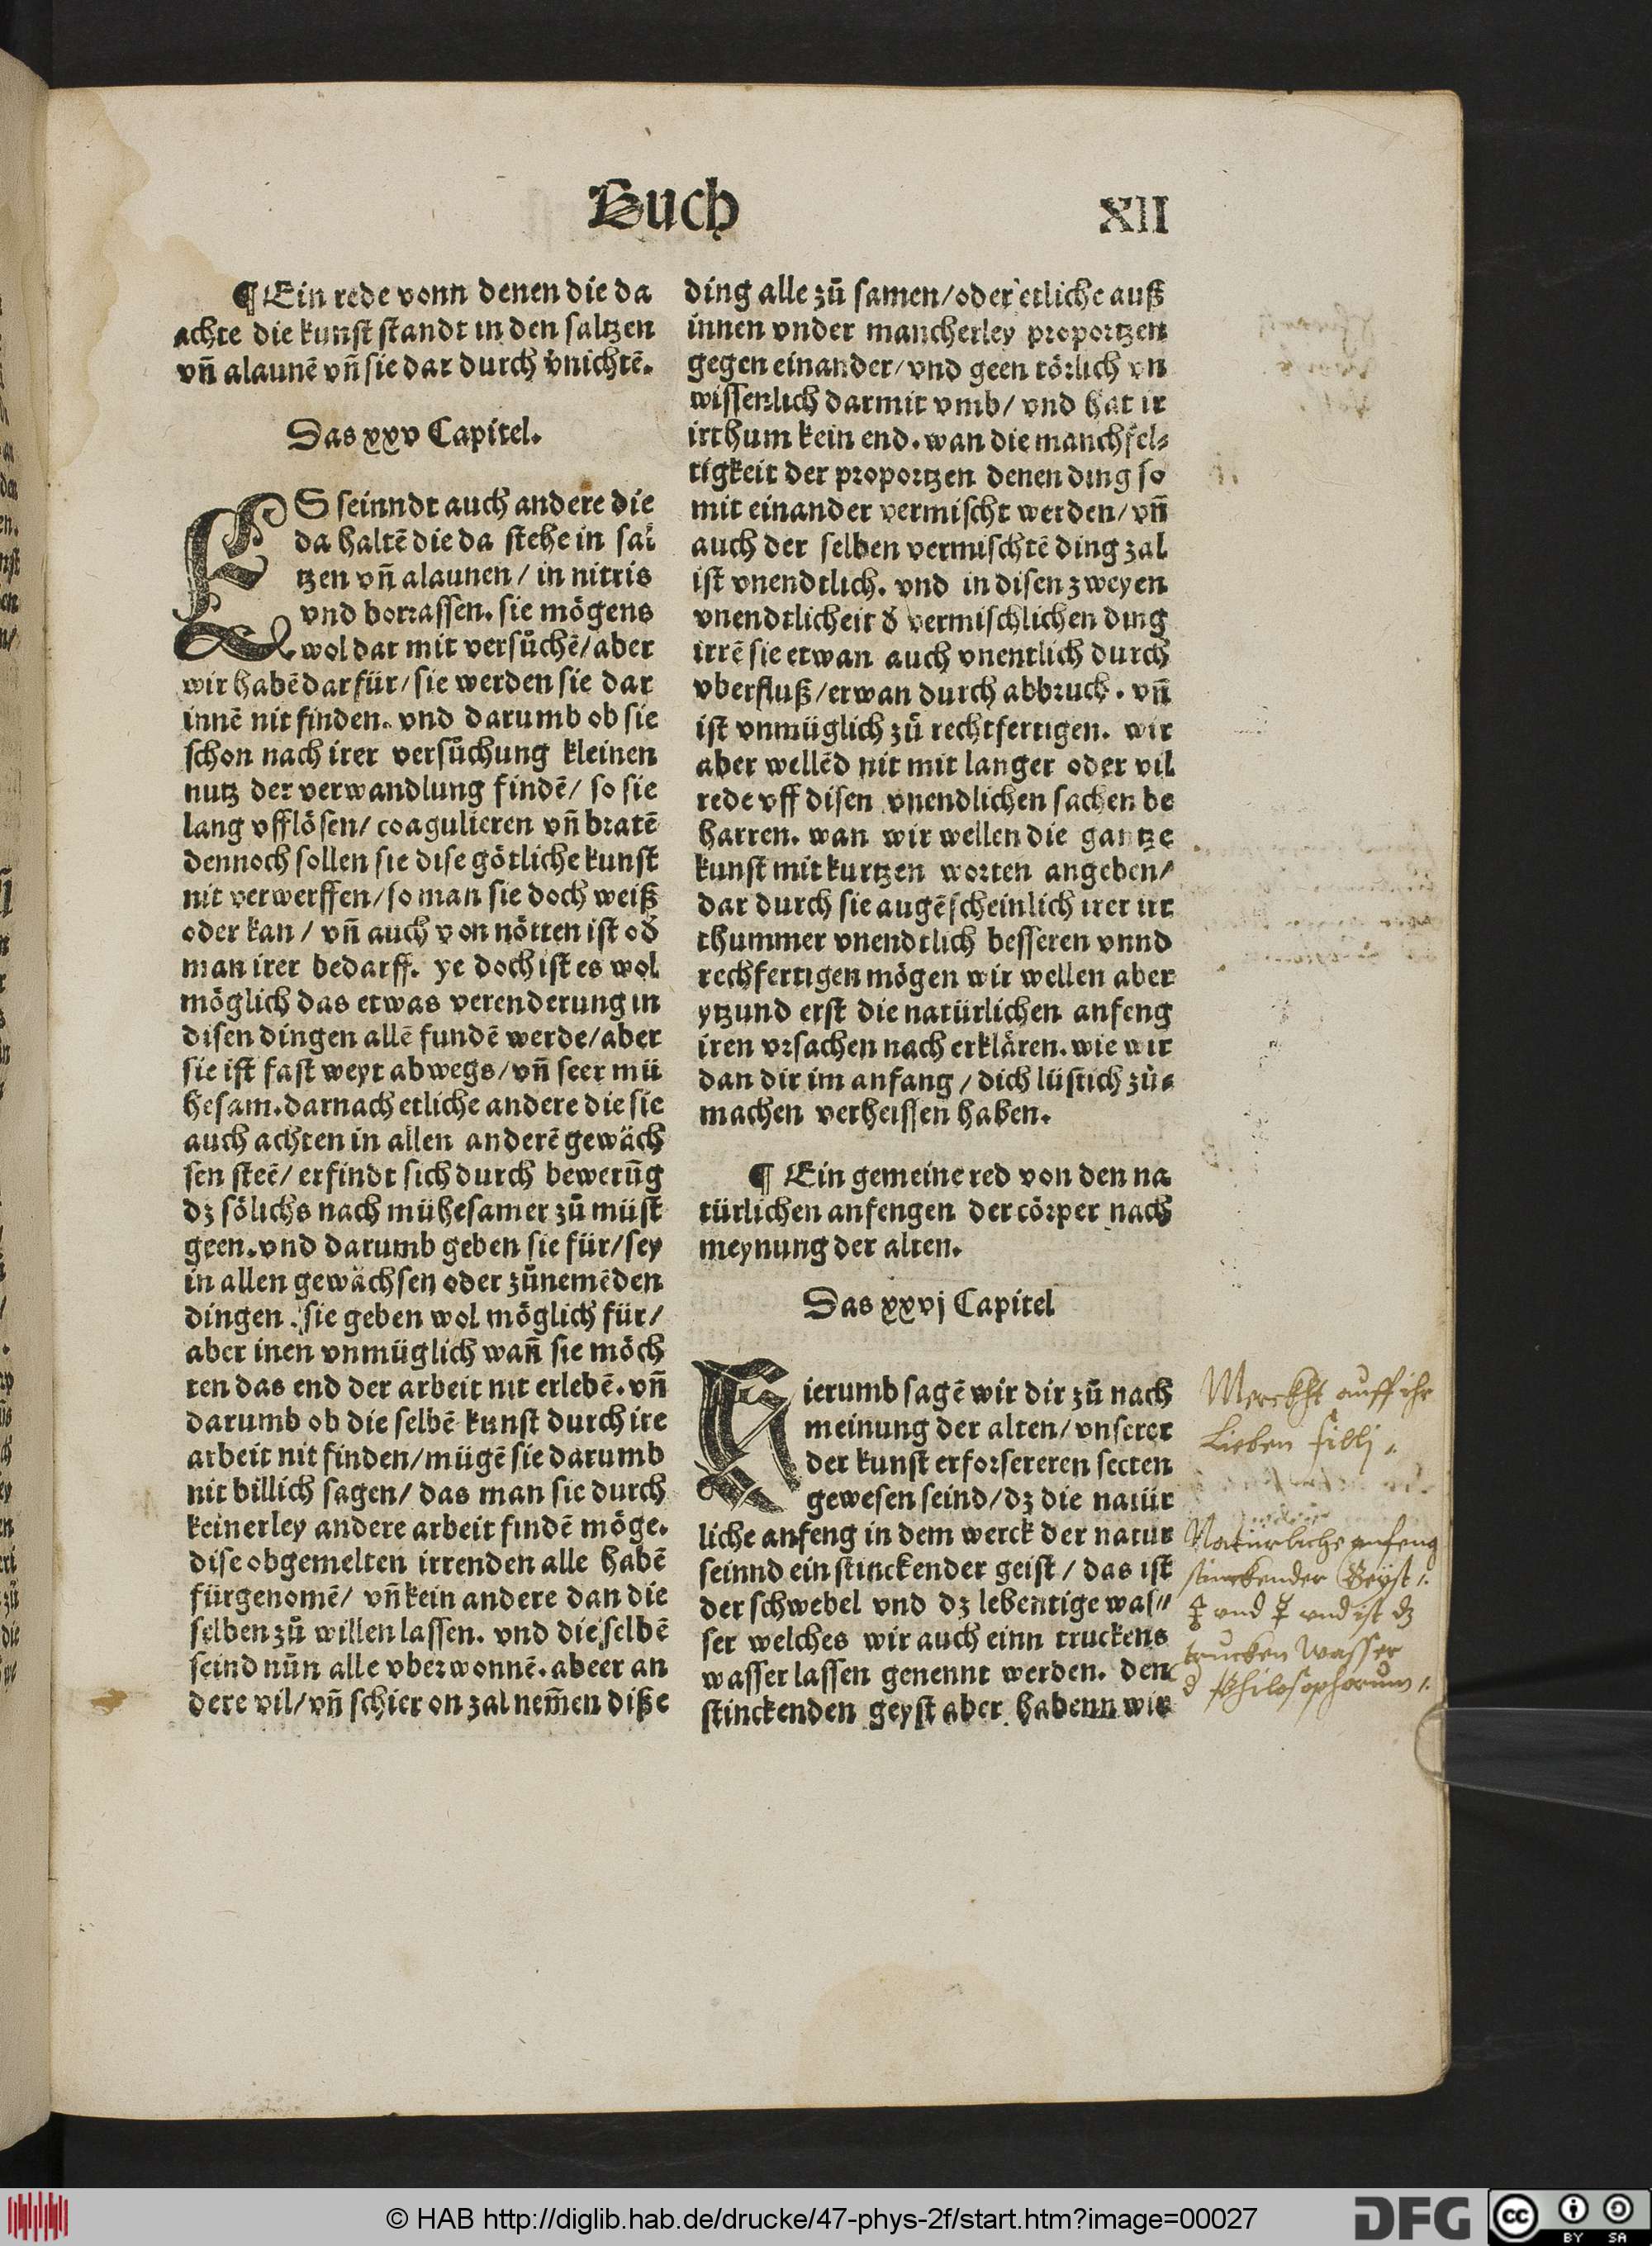 Buch
XII
¶ Ein rede vonn denen die da
achte die kunst standt in den saltzen
vñ alaunẽ vñ sie dar durch v̓nichtẽ.
Das xxv Capitel.
ES seinndt auch andere die
da haltẽ die da stehe in sal
tzen vñ alaunen / in nitris
vnd borrassen. sie mögens
wol dar mit versůchẽ/aber
wir habẽ darfür/sie werden sie dar
innẽ nit finden. vnd darumb ob sie
schon nach irer versůchung kleinen
nutz der verwandlung findẽ/ so sie
lang vfflösen/ coagulieren vñ bratẽ
dennoch sollen sie dise götliche kunst
nit verwerffen/so man sie doch weiß
oder kan / vñ auch von nötten ist od
man irer bedarff. ye doch ist es wol
möglich das etwas verenderung in
disen dingen allẽ fundẽ werde/aber
sie ist fast weyt abwegs/vñ seer mü
hesam.darnach etliche andere die sie
auch achten in allen anderẽ gewäch
sen steẽ/ erfindt sich durch bewerũg
dz sölichs nach mühesamer zů müst
geen.vnd darumb geben sie für/sey
in allen gewächsen oder zůnemẽden
dingen .sie geben wol möglich für/
aber inen vnmüglich wañ sie möch
ten das end der arbeit nit erlebẽ. vñ
darumb ob die selbẽ kunst durch ire
arbeit nit finden/mügẽ sie darumb
nit billich sagen/ das man sie durch
keinerley andere arbeit findẽ möge.
dise obgemelten irrenden alle habẽ
fürgenomẽ/ vñ kein andere dan die
selben zů willen lassen. vnd die selbẽ
seind nůn alle vberwonnẽ. abeer an
dere vil/vñ schier on zal nem̃en diße
ding alle zů samen/oder etliche auß
innen vnder mancherley proportzen
gegen einander/vnd geen törlich vn
wissenlich darmit vmb/ vnd hat ir
irthum kein end. wan die manchfel⸗
tigkeit der proportzen denen ding so
mit einander vermischt werden/vñ
auch der selben vermischtẽ ding zal
ist vnendtlich. vnd in disen zweyen
vnendtlicheit d̓ vermischlichen ding
irrẽ sie etwan auch vnentlich durch
vberfluß/etwan durch abbruch. vñ
ist vnmüglich zů rechtfertigen. wir
aber wellẽd nit mit langer oder vil
rede vff disen vnendlichen sachen be
harren. wan wir wellen die gantze
kunst mit kurtzen worten angeben/
dar durch sie augẽscheinlich irer irr
thummer vnendtlich besseren vnnd
rechfertigen mögen wir wellen aber
ytzund erst die natürlichen anfeng
iren vrsachen nach erklären. wie wir
dan dir im anfang / dich lüstich zů⸗
machen verheissen haben.
¶ Ein gemeine red von den na
türlichen anfengen der cörper nach
meynung der alten.
Das xxvj Capitel
Hierumb sagẽ wir dir zů nach
meinung der alten/vnserer
der kunst erforsereren secten
gewesen seind/dz die natür
liche anfeng in dem werck der natur
seinnd ein stinckender geist / das ist
der schwebel vnd dz lebentige was⸗
ser welches wir auch einn truckens
wasser lassen genennt werden. den
stinckenden geyst aber habenn wir
Merckht auff ihr
Lieben filij
Natürliche anfeng
stinckender Geyst
🜍 vnd ☿ vnd ist dz
trucken Wasser
d philosophorum
© HAB http://diglib.hab.de/drucke/47-phys-2f/start.htm?image=00027
DFG
cc
BY SA